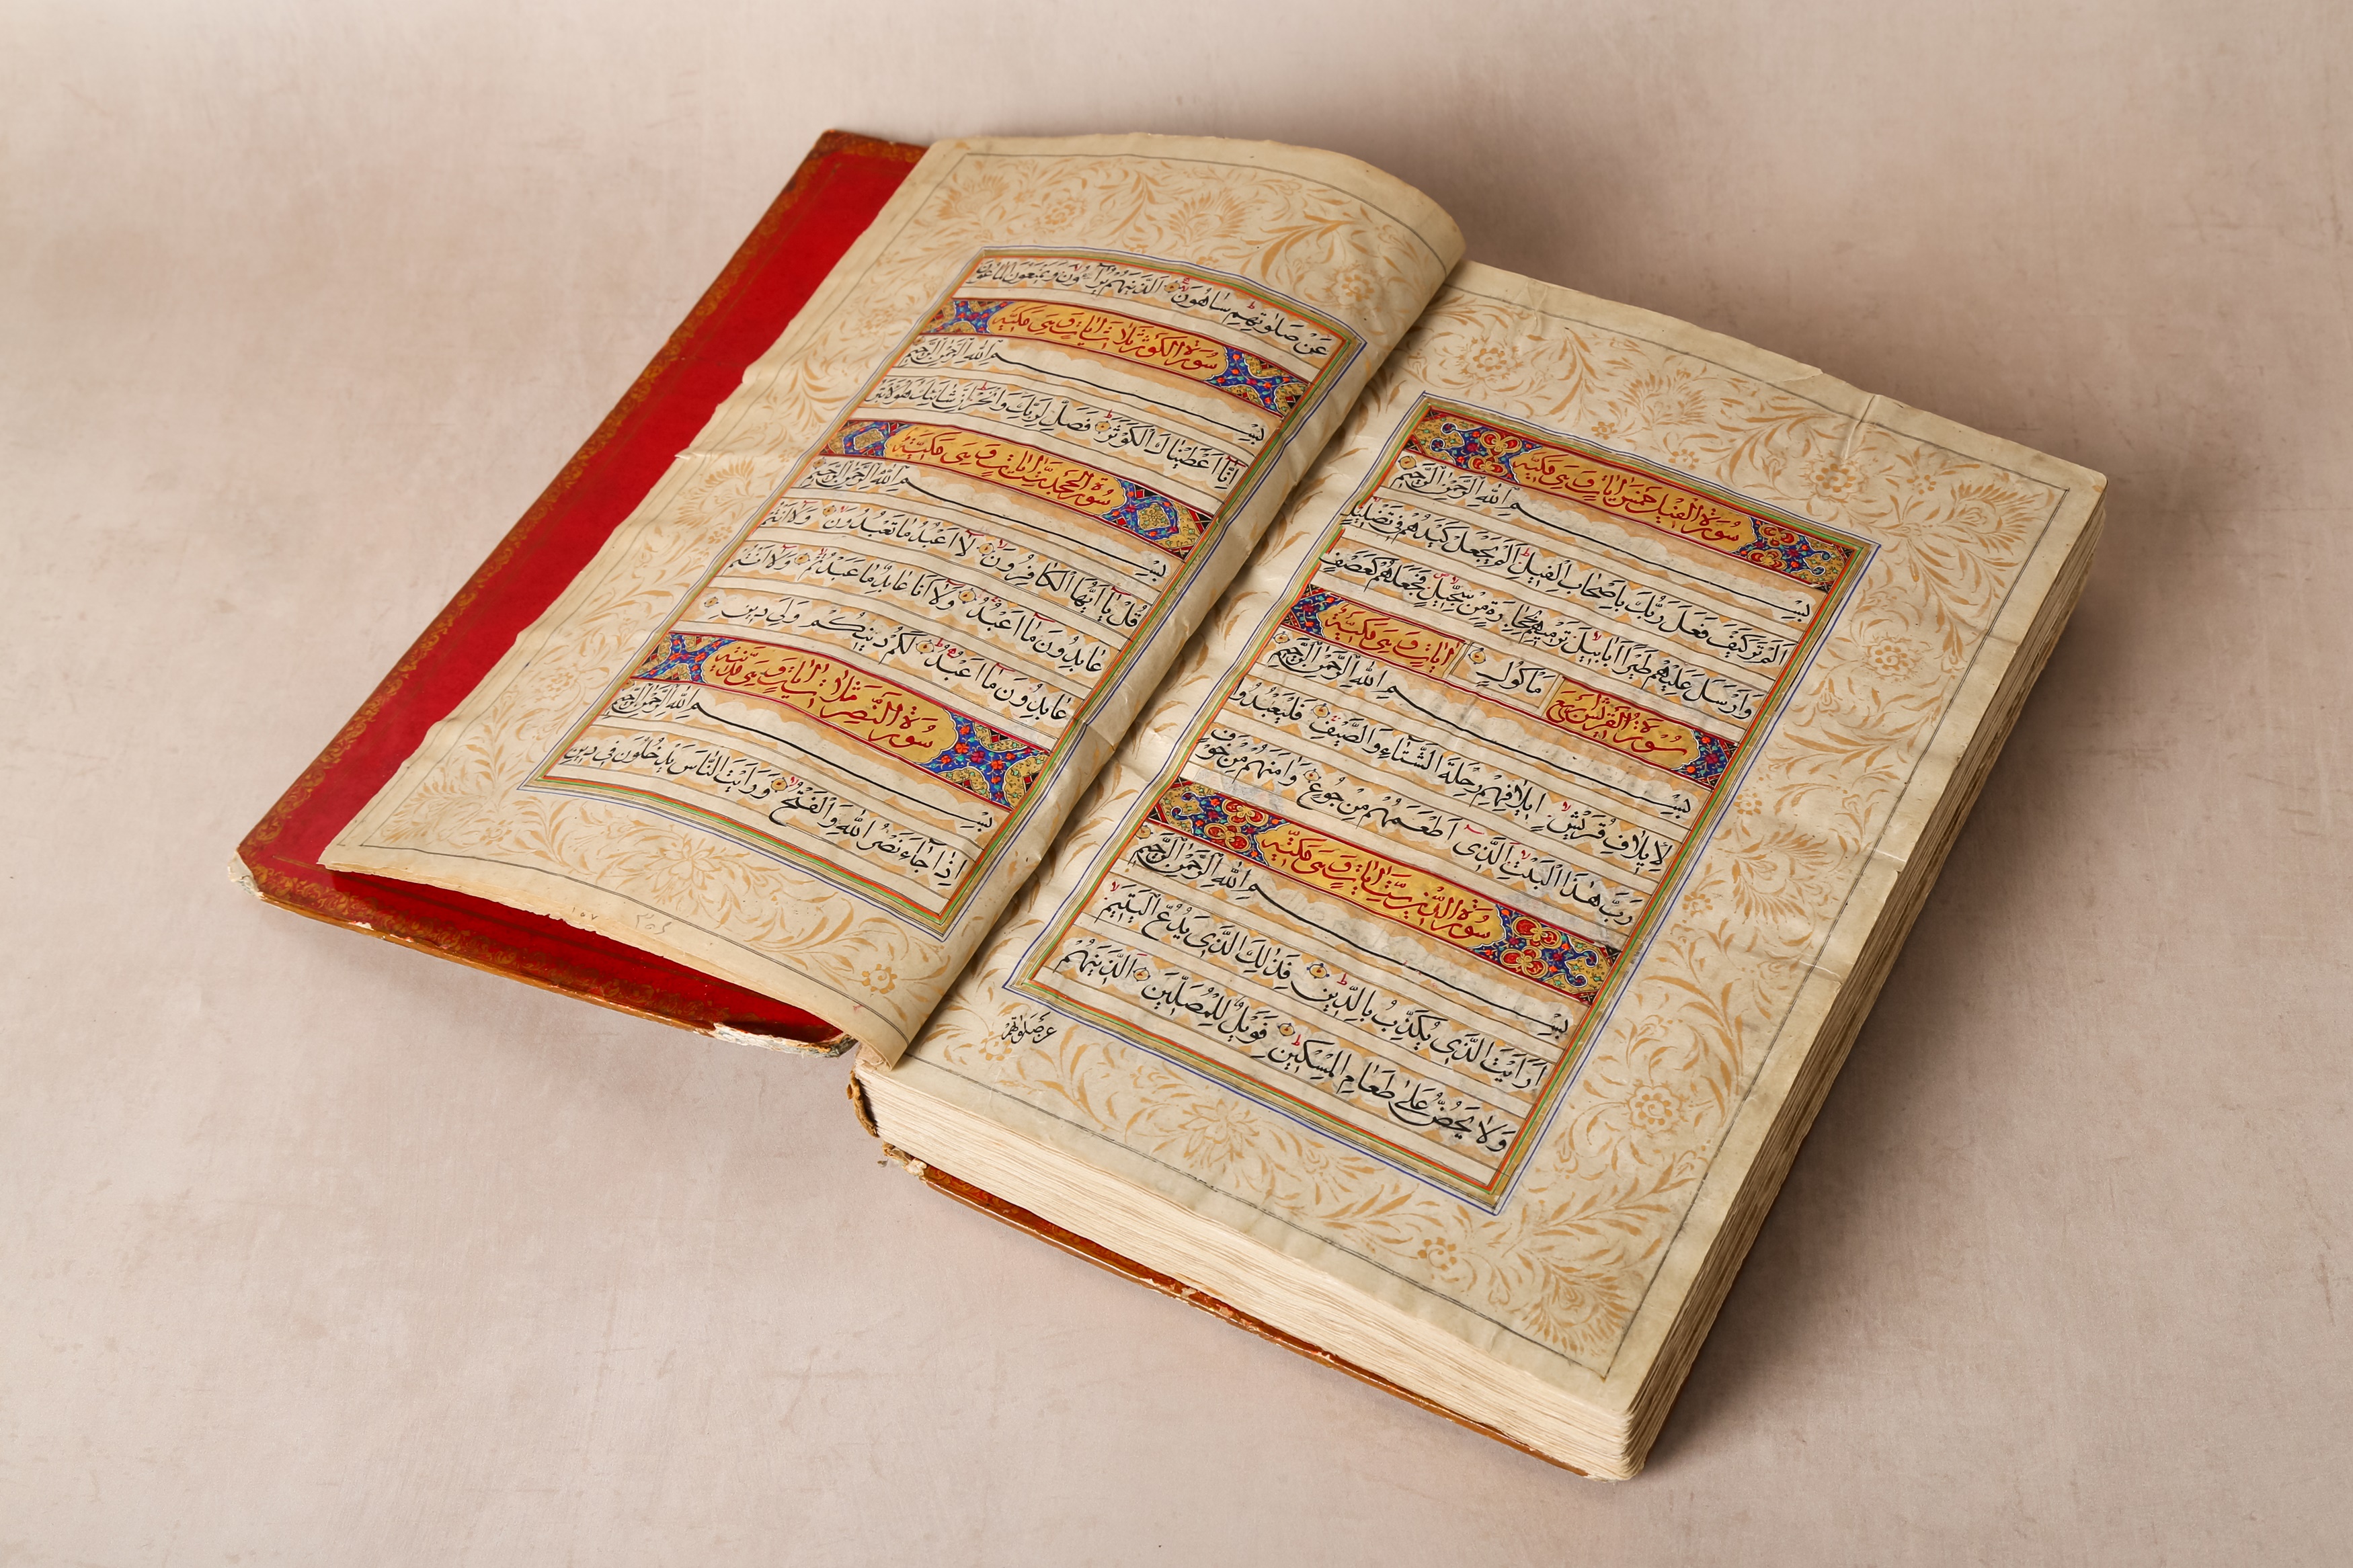 سورة الفيل خمس ايات وهى مكية
بسم الله الرحمن الرحيم
الم تر كيف فعل ربك باصحاب الفيل الم يجعل كيدهم فى تضليل
وارسل عليهم طيرا ابابيل ترميهم بحجارة من سجيل فجعلهم كعصف
سورة القريش اربع ماكول ايات وهى مكية
بسم الله الرحمن الرحيم
لايلاف قريش ايلافهم رحلة الشتاء والصيف فليعبدوا
رب هذا البيت الذى اطعمهم من جوع وامنهم من خوف
سورة الدين ست ايات وهى مكية
بسم الله الرحمن الرحيم
ارايت الذى يكذب بالدين فذلك الذى يدع اليتيم
ولا يحض على طعام المسكين فويل للمصلين الذينهم
عن صلوتهم
عن صلوتهم ساهون الذينهم يراؤن ويمنعون الماعون
سورة الكوثر ثلاث ايات وهى مكية
بسم الله الرحمن الرحيم
انا اعطيناك الكوثر فصل لربك وانحر ان شانئك هو الابتر
سورة الجحد ست ايات وهى مكية
بسم الله الرحمن الرحيم
قل يا ايها الكافرون لا اعبد ما تعبدون ولا انتم
عابدون ما اعبد ولا انا عابد ما عبدتم ولا انتم
عابدون ما اعبد لكم دينكم ولى دين
سورة النصر ثلاث ايات وهى مدنية
بسم الله الرحمن الرحيم
اذا جاء نصر الله والفتح ورايت الناس يدخلون فى دين